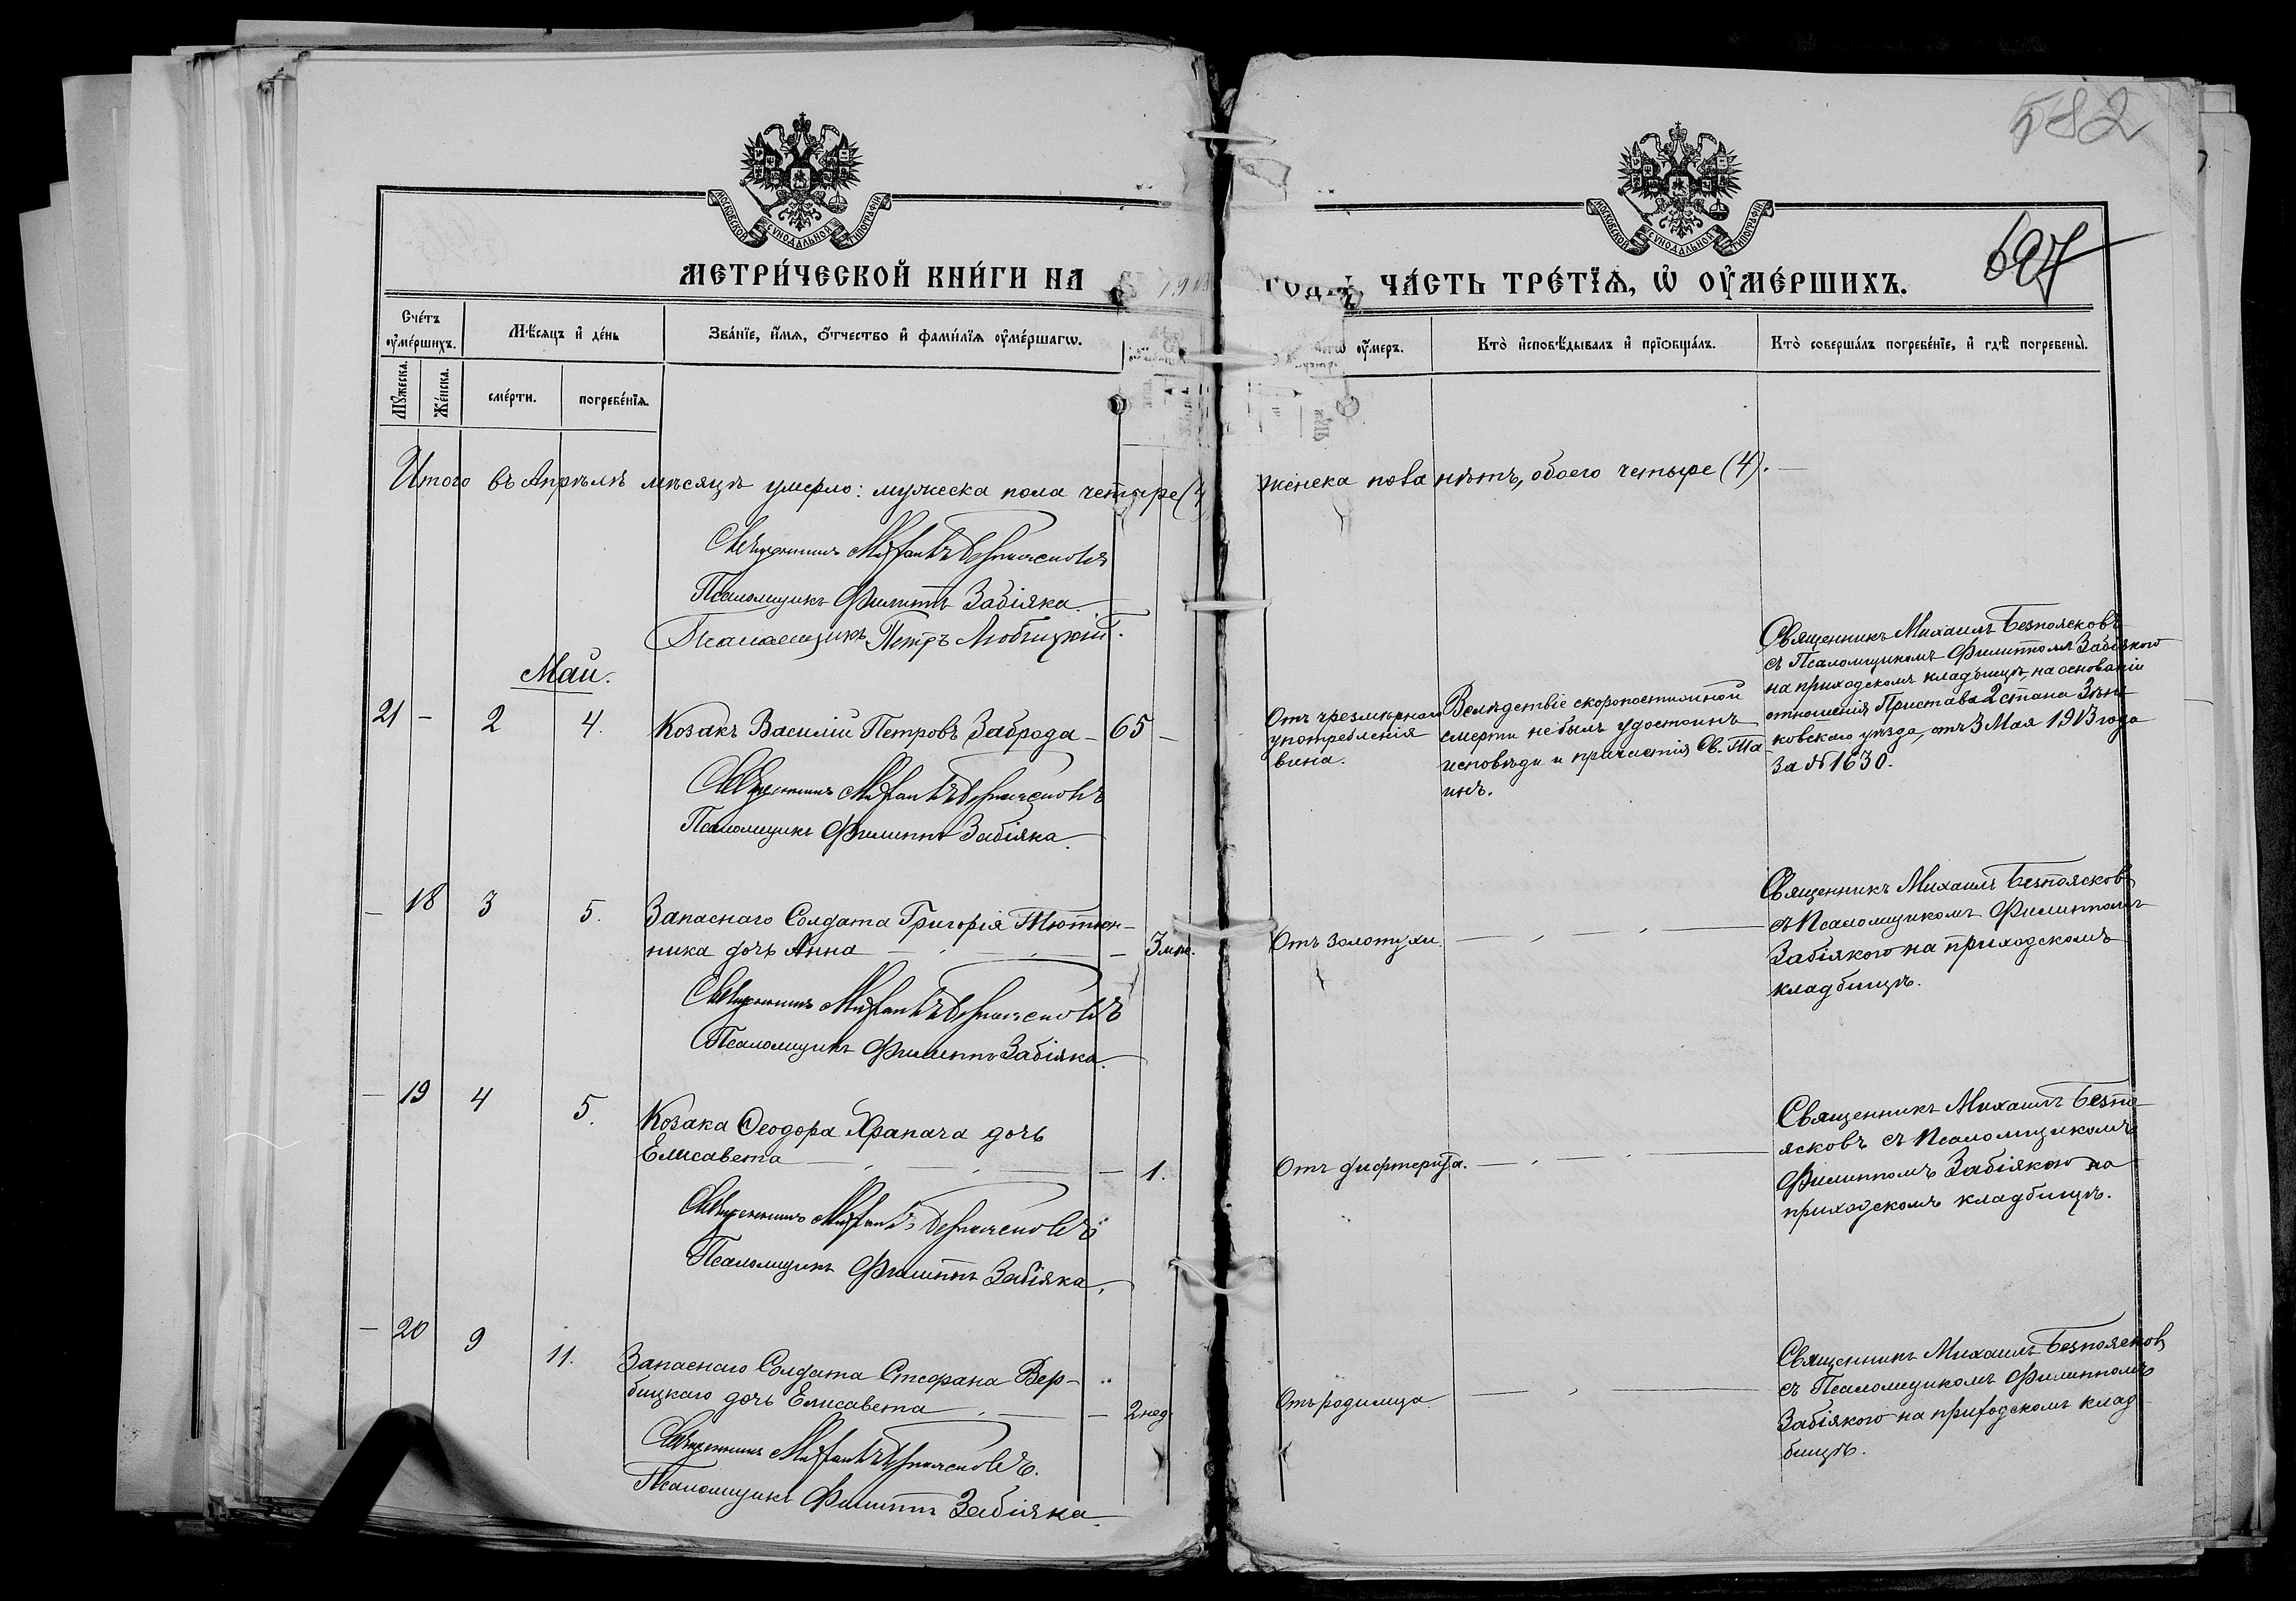 582
697
МОСКОВСКОЙ СѴНОДАЛЬНОЙ ТИПОГРАФІИ
МОСКОВСКОЙ СѴНОДАЛЬНОЙ ТИПОГРАФІИ
МЕТРИ́ЧЕСКОЙ КНИ́ГИ НА
ЧА́СТЬ ТРЕ́ТЇѦ, Ѡ҆ ОУ҆МЕ́РШИХЪ.
Сче́тъ
оу҆ме́ршихъ.
Мѣ́сяцъ и҆ де́нь
Зва́нїе, и҆́мѧ, ѻ҆́тчество и҆ фами́лїѧ оу҆ме́ршагѡ.
оу҆́меръ.
Кто̀ и҆сповѣ́дывалъ и҆ прїѡбща́лъ.
Кто̀ соверша́лъ погребе́нїе, и҆ гдѣ̀ погребены̀.
Мꙋ́жеска.
Же́нска.
сме́рти.
погребе́нїѧ.
Итого въ Апрѣлѣ мѣсяцѣ умерло: мужеска пола четыре (4
женска пола нѣтъ, обоего четыре (4). —
Священникъ Михаилъ Безпоясковъ
Псаломщикъ Филиппъ Забіяка.
Псаломщикъ Петръ
Май.
21 — 2 4. Козакъ Василій Петровъ Заброда — 65 —
Отъ чрезмѣрнаго
употребленія
вина.
Вслѣдствіе скоропостижной
смерти не былъ удостоинъ
исповѣди и причастія Св. Та-
инъ.
Священникъ Михаилъ Безпоясковъ
съ Псаломщикомъ Филиппомъ Забіякого
на приходскомъ кладбищѣ, на основаніи
отношенія Пристава 2 стана Зѣнь-
ковскаго уѣзда, отъ 3 Мая 1913 года
за № 1630.
Священникъ Михаилъ Безпоясковъ
Псаломщикъ Филиппъ Забіяка.
— 18 3 5. Запаснаго Солдата Григорія Тютюн-
ника дочь Анна — — — 3 мѣс.
Отъ золотухи.
Священникъ Михаилъ Безпоясковъ
съ Псаломщикомъ Филиппомъ
Забіякого на приходскомъ
кладбищѣ.
Священникъ Михаилъ Безпоясковъ
Псаломщикъ Филиппъ Забіяка.
— 19 4 5. Козака Ѳеодора Храпача дочь
Елисавета — — — 1.
Отъ дифтерита.
Священникъ Михаилъ Безпо-
ясковъ съ Псаломщикомъ
Филиппомъ Забіякою на
приходскомъ кладбищѣ.
Священникъ Михаилъ Безпоясковъ
Псаломщикъ Филиппъ Забіяка.
— 20 9 11. Запаснаго Солдата Стефана Вер-
бицкаго дочь Елисавета — — 2 нед.
Отъ родимца.
Священникъ Михаилъ Безпоясковъ
съ Псаломщикомъ Филиппомъ
Забіякого на приходскомъ клад-
бищѣ.
Священникъ Михаилъ Безпоясковъ.
Псаломщикъ Филиппъ Забіяка.